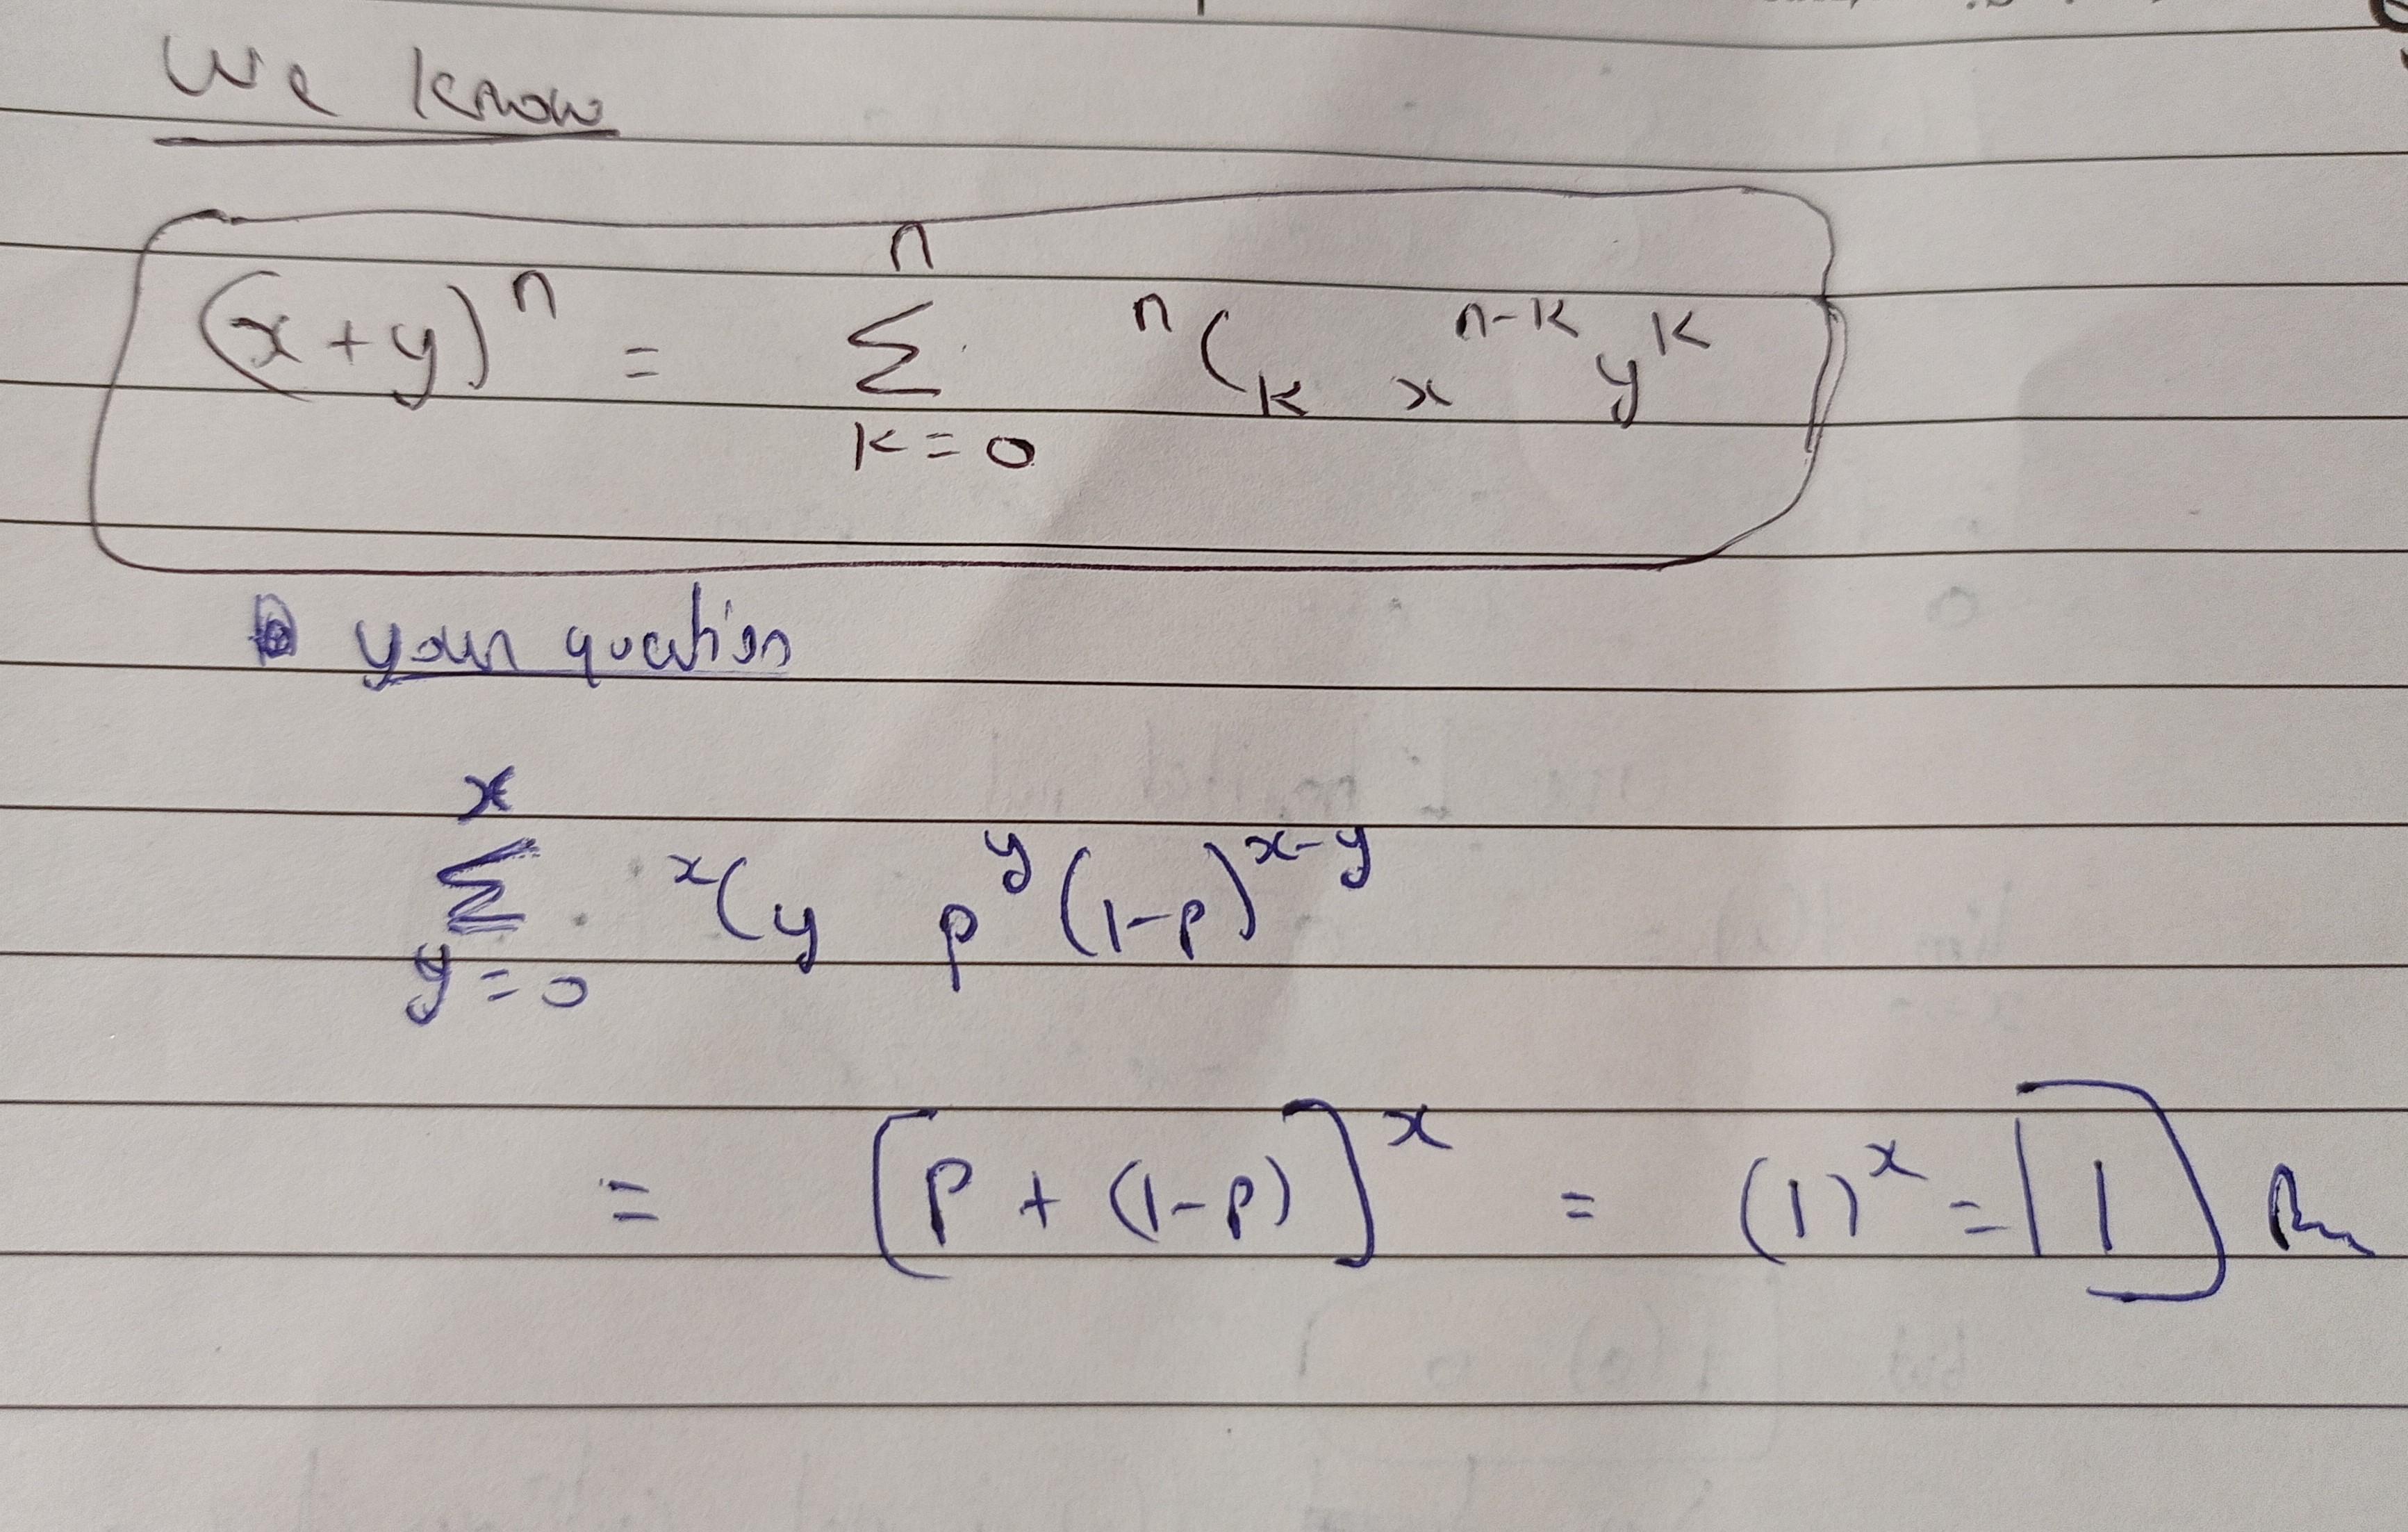 We know
(x+y)^n = \sum_{k=0}^{n} {}^nC_k x^{n-k} y^k
your question
\sum_{y=0}^{x} {}^xC_y p^y (1-p)^{x-y}
= [p + (1-p)]^x = (1)^x = 1